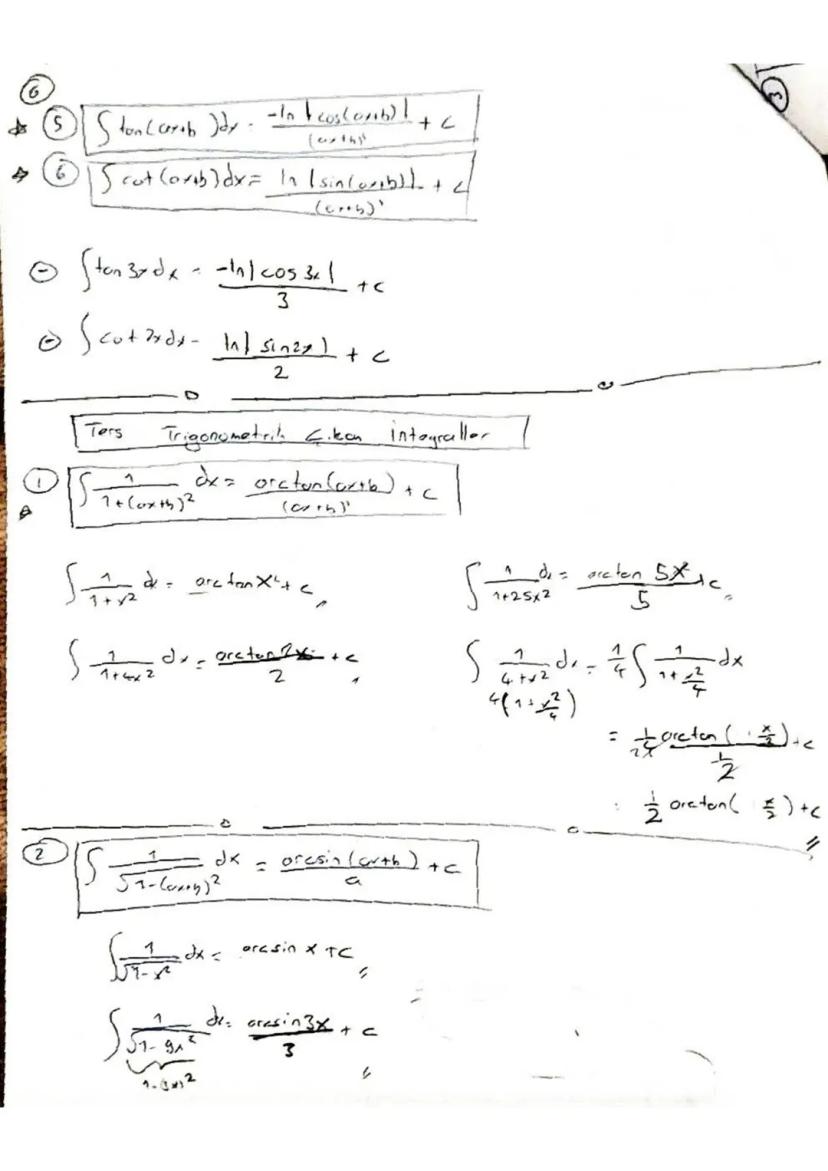 6
3
5 ∫ tan(ax+b)dx = -ln|cos(ax+b)| / (ax+b)' + c
6 ∫ cot(ax+b)dx = ln|sin(ax+b)| / (ax+b)' + c
∫ tan 3x dx = -ln|cos 3x| / 3 + c
∫ cot 2x dx = ln|sin 2x| / 2 + c
Ters Trigonometrik Çıkan integraller
1 ∫ 1/(1+(ax+b)²) dx = arctan(ax+b) / (ax+b)' + c
∫ 1/(1+x²) dx = arctan x + c
∫ 1/(1+25x²) dx = arctan 5x / 5 + c
∫ 1/(1+4x²) dx = arctan 2x / 2 + c
∫ 1/(4+x²) dx = 1/4 ∫ 1/(1+x²/4) dx
4(1+x²/4)
= 1/4 arctan(x/2) / (1/2) + c
1/2 arctan(x/2) + c
2 ∫ 1/√(1-(ax+b)²) dx = arcsin(ax+b) / a + c
∫ 1/√(1-x²) dx = arcsin x + c
∫ 1/√(1-9x²) dx = arcsin 3x / 3 + c
1-(3x)²